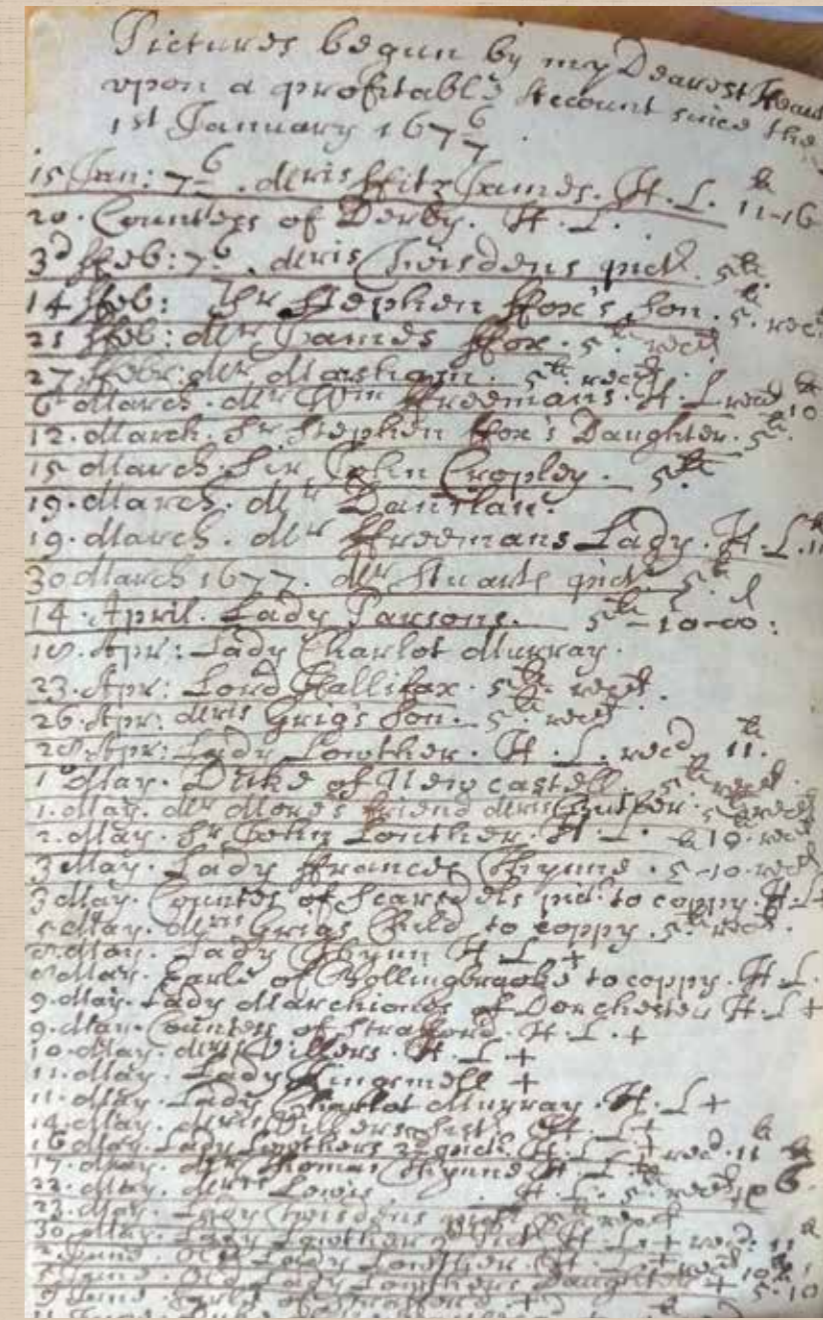 Pictures begun by my Dearest Heart
upon a profitable Account since the
1st January 167 6/7.
15 Jan: 7 6/7. Mris ffitz James. H. L. li 11-16
20. Countess of Derby. H. L.
3d ffeb: 7 6/7. Mris Cheisdens pict. 5 li
14 ffeb: Sr Stephen ffox's son. 5 li. recd
21 ffeb: Mr James ffox. 5 li. recd
27. ffebr: Mr 5 li. recd
6 March. Mr Wm ffreemans. H. L recd 10 li
12. March. Sr Stephen ffox's Daughter. 5 li.
15 March. Sir John Cropley. 5 li
19. March. Mr
19. March. Mr ffreemans Lady. H. L. 11 li
30 March 1677. Mr Stuarts pict. 5 li
14. April. Lady Parsons. 5 li - 10-00:
18. Apr: Lady Charlot Murray.
23. Apr: Lord Hallifax. 5 li. recd.
26. Apr: Mris Grigs Son. 5 li. recd
28. Apr: Lady Lowther. H. L. recd 11 li.
1 May. Duke of New castell. 5 li recd.
1. May. Mr More's friend Mris 5 li recd
2. May. Sr John Lowther. H. L. li 10. recd
3 May. Lady ffrances Thynne. 5 - 10. recd
3 May. Countes of Scarsdels pict. to coppy. H. L+
5 May. Mris Grigs Child to coppy. 5 li. recd.
8 May. Lady H L. +
8 May. Earle of Bollingbrooke to coppy. H. L.
9. May. Lady Marchiones of Dorchester H. L +
9. May. Countess of Straford. H. L. +
10. May. Mris Villers. H. L +
11. May. Lady Kingsmell +
11. May. Lady Charlot Murray. H. L +
14. May. Mris H L +
16 May. Lady Lowthers 2d pict. H. L + recd. 11 li
17. May. Mr Thomas Thynne H L. +
22. May. Mris Lewis H. L. 5. recd
23. May. Lady Cheisdens pict 5 recd
30. May. Lady Lowther pict H L + recd: 11 li
2. June. Old Lady Lowther. H. L + recd 10 li
5 June. Old Lady Lowthers Daughter + 5-10
9 June. Earle of Strafford. +